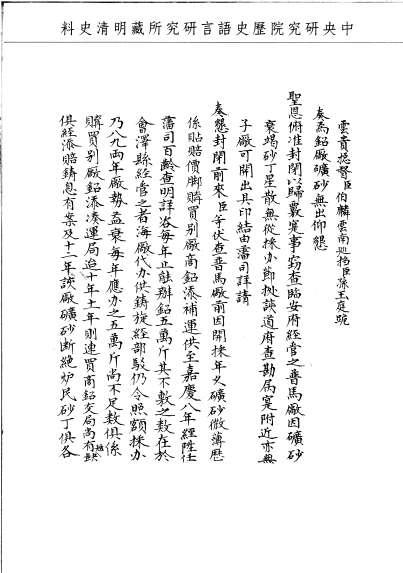 中央研究院歷史語言研究所藏明清史料
雲貴總督臣伯麟雲南巡撫臣孫玉庭跪
奏為鉛廠礦砂無出仰懇
聖恩俯准封閉以歸覈實事竊查臨安府經管之普馬廠因礦砂
衰竭砂丁星散無從採办節據該道府查勘屬實附近亦無
子廠可開出具印結由藩司詳請
奏懇封閉前來臣等伏查普馬廠前因開採年久礦砂微薄歷
係貼賠價脚購買别廠商鉛添補運供至嘉慶八年經陞任
藩司百齡查明詳咨每年止能辦鉛五萬斤其不敷之数在於
會澤縣經管之者海廠代办供鑄旋經部駁仍令照額採办
乃八九兩年廠勢益衰每年應办之五萬斤尚不足数俱係
購買别廠鉛添湊運局迨十年十一年則連買商鉛交局尚有缺
俱經添賠鑄息有案及十二年該廠礦砂断絶炉民砂丁俱各